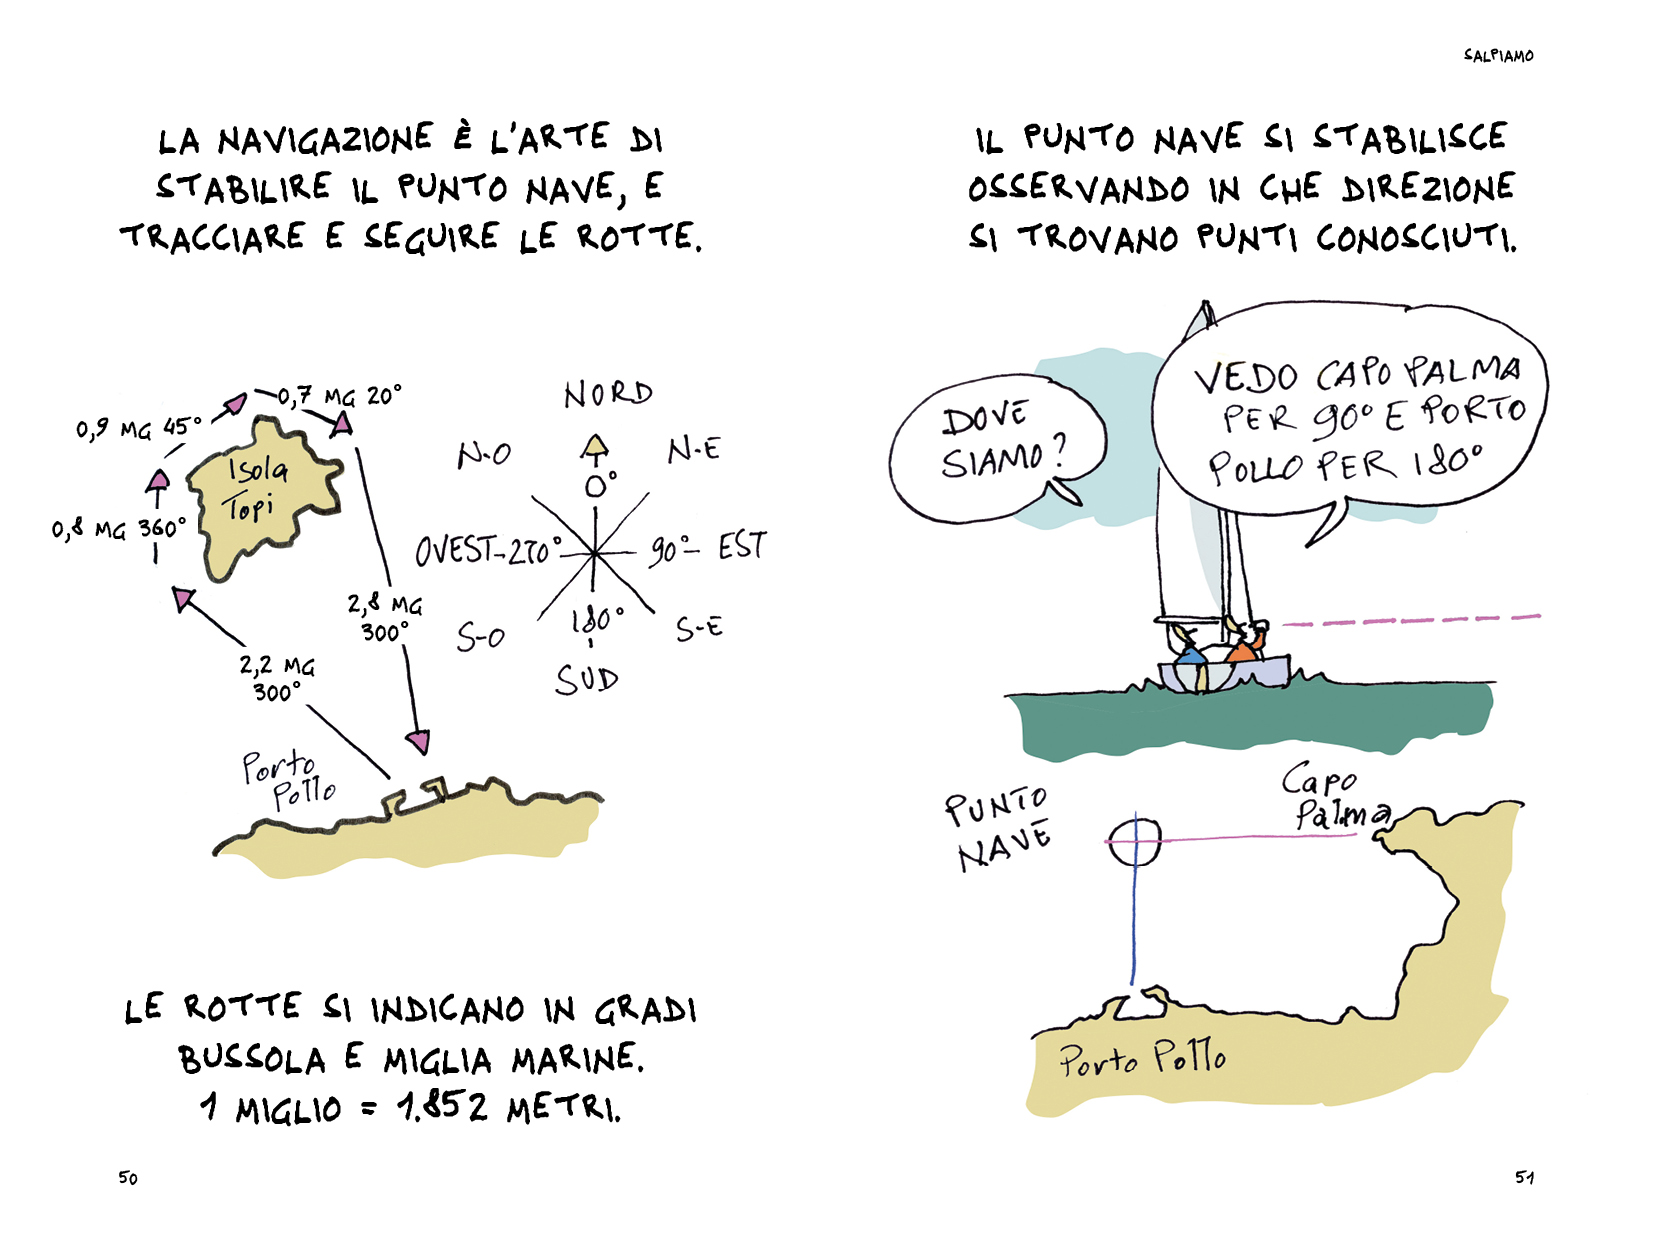 LA NAVIGAZIONE È L'ARTE DI
STABILIRE IL PUNTO NAVE, E
TRACCIARE E SEGUIRE LE ROTTE.
0,7 MG 20°
0,9 MG 45°
Isola
Topi
0,8 MG 360°
2,8 MG
300°
2,2 MG
300°
Porto
Pollo
NORD
N-O
N-E
0°
OVEST-270°
90°- EST
180°
S-O
S-E
SUD
LE ROTTE SI INDICANO IN GRADI
BUSSOLA E MIGLIA MARINE.
1 MIGLIO = 1.852 METRI.
50
SALPIAMO
IL PUNTO NAVE SI STABILISCE
OSSERVANDO IN CHE DIREZIONE
SI TROVANO PUNTI CONOSCIUTI.
DOVE
SIAMO?
VEDO CAPO PALMA
PER 90° E PORTO
POLLO PER 180°
PUNTO
NAVE
Capo
Palma
Porto Pollo
51